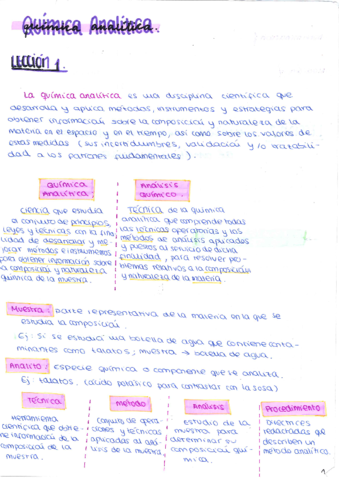 Química Analítica.
LECCIÓN 1.
La química analítica es una disciplina científica que
desarrolla y aplica métodos, instrumentos y estrategias para
obtener información sobre la composición y naturaleza de la
materia en el espacio y en el tiempo, así como sobre los valores de
estas medidas (sus incertidumbres, validación y/o trazabili-
dad a los patrones fundamentales).
Química
Analítica:
Ciencia que estudia
el conjunto de principios,
leyes y técnicas con la fina-
lidad de desarrollar y me-
jorar métodos e instrumentos
para obtener información sobre
la composición y naturaleza
química de la muestra.
Análisis
químico:
TÉCNICA de la química
analítica que comprende todas
las técnicas operatorias y los
métodos de análisis aplicados
y puestos al servicio de dicha
finalidad, para resolver pro-
blemas relativos a la composición
y naturaleza de la materia.
Muestra: parte representativa de la materia en la que se
estudia la composición.
Ej: Si se estudia una botella de agua que contiene conta-
minantes como talatos; muestra → botella de agua.
Analito: Especie química o componente que se analiza.
Ej: talatos. (ácido para contrastar con la sosa)
Técnica:
Herramienta
científica que obtie-
ne información de la
composición de la
muestra.
Método:
Conjunto de opera-
ciones y técnicas
aplicadas al aná-
lisis de la muestra.
Análisis:
estudio de la
muestra para
determinar su
composición quí-
mica.
Procedimiento:
Directrices
redactadas que
describen un
método analítico.
1